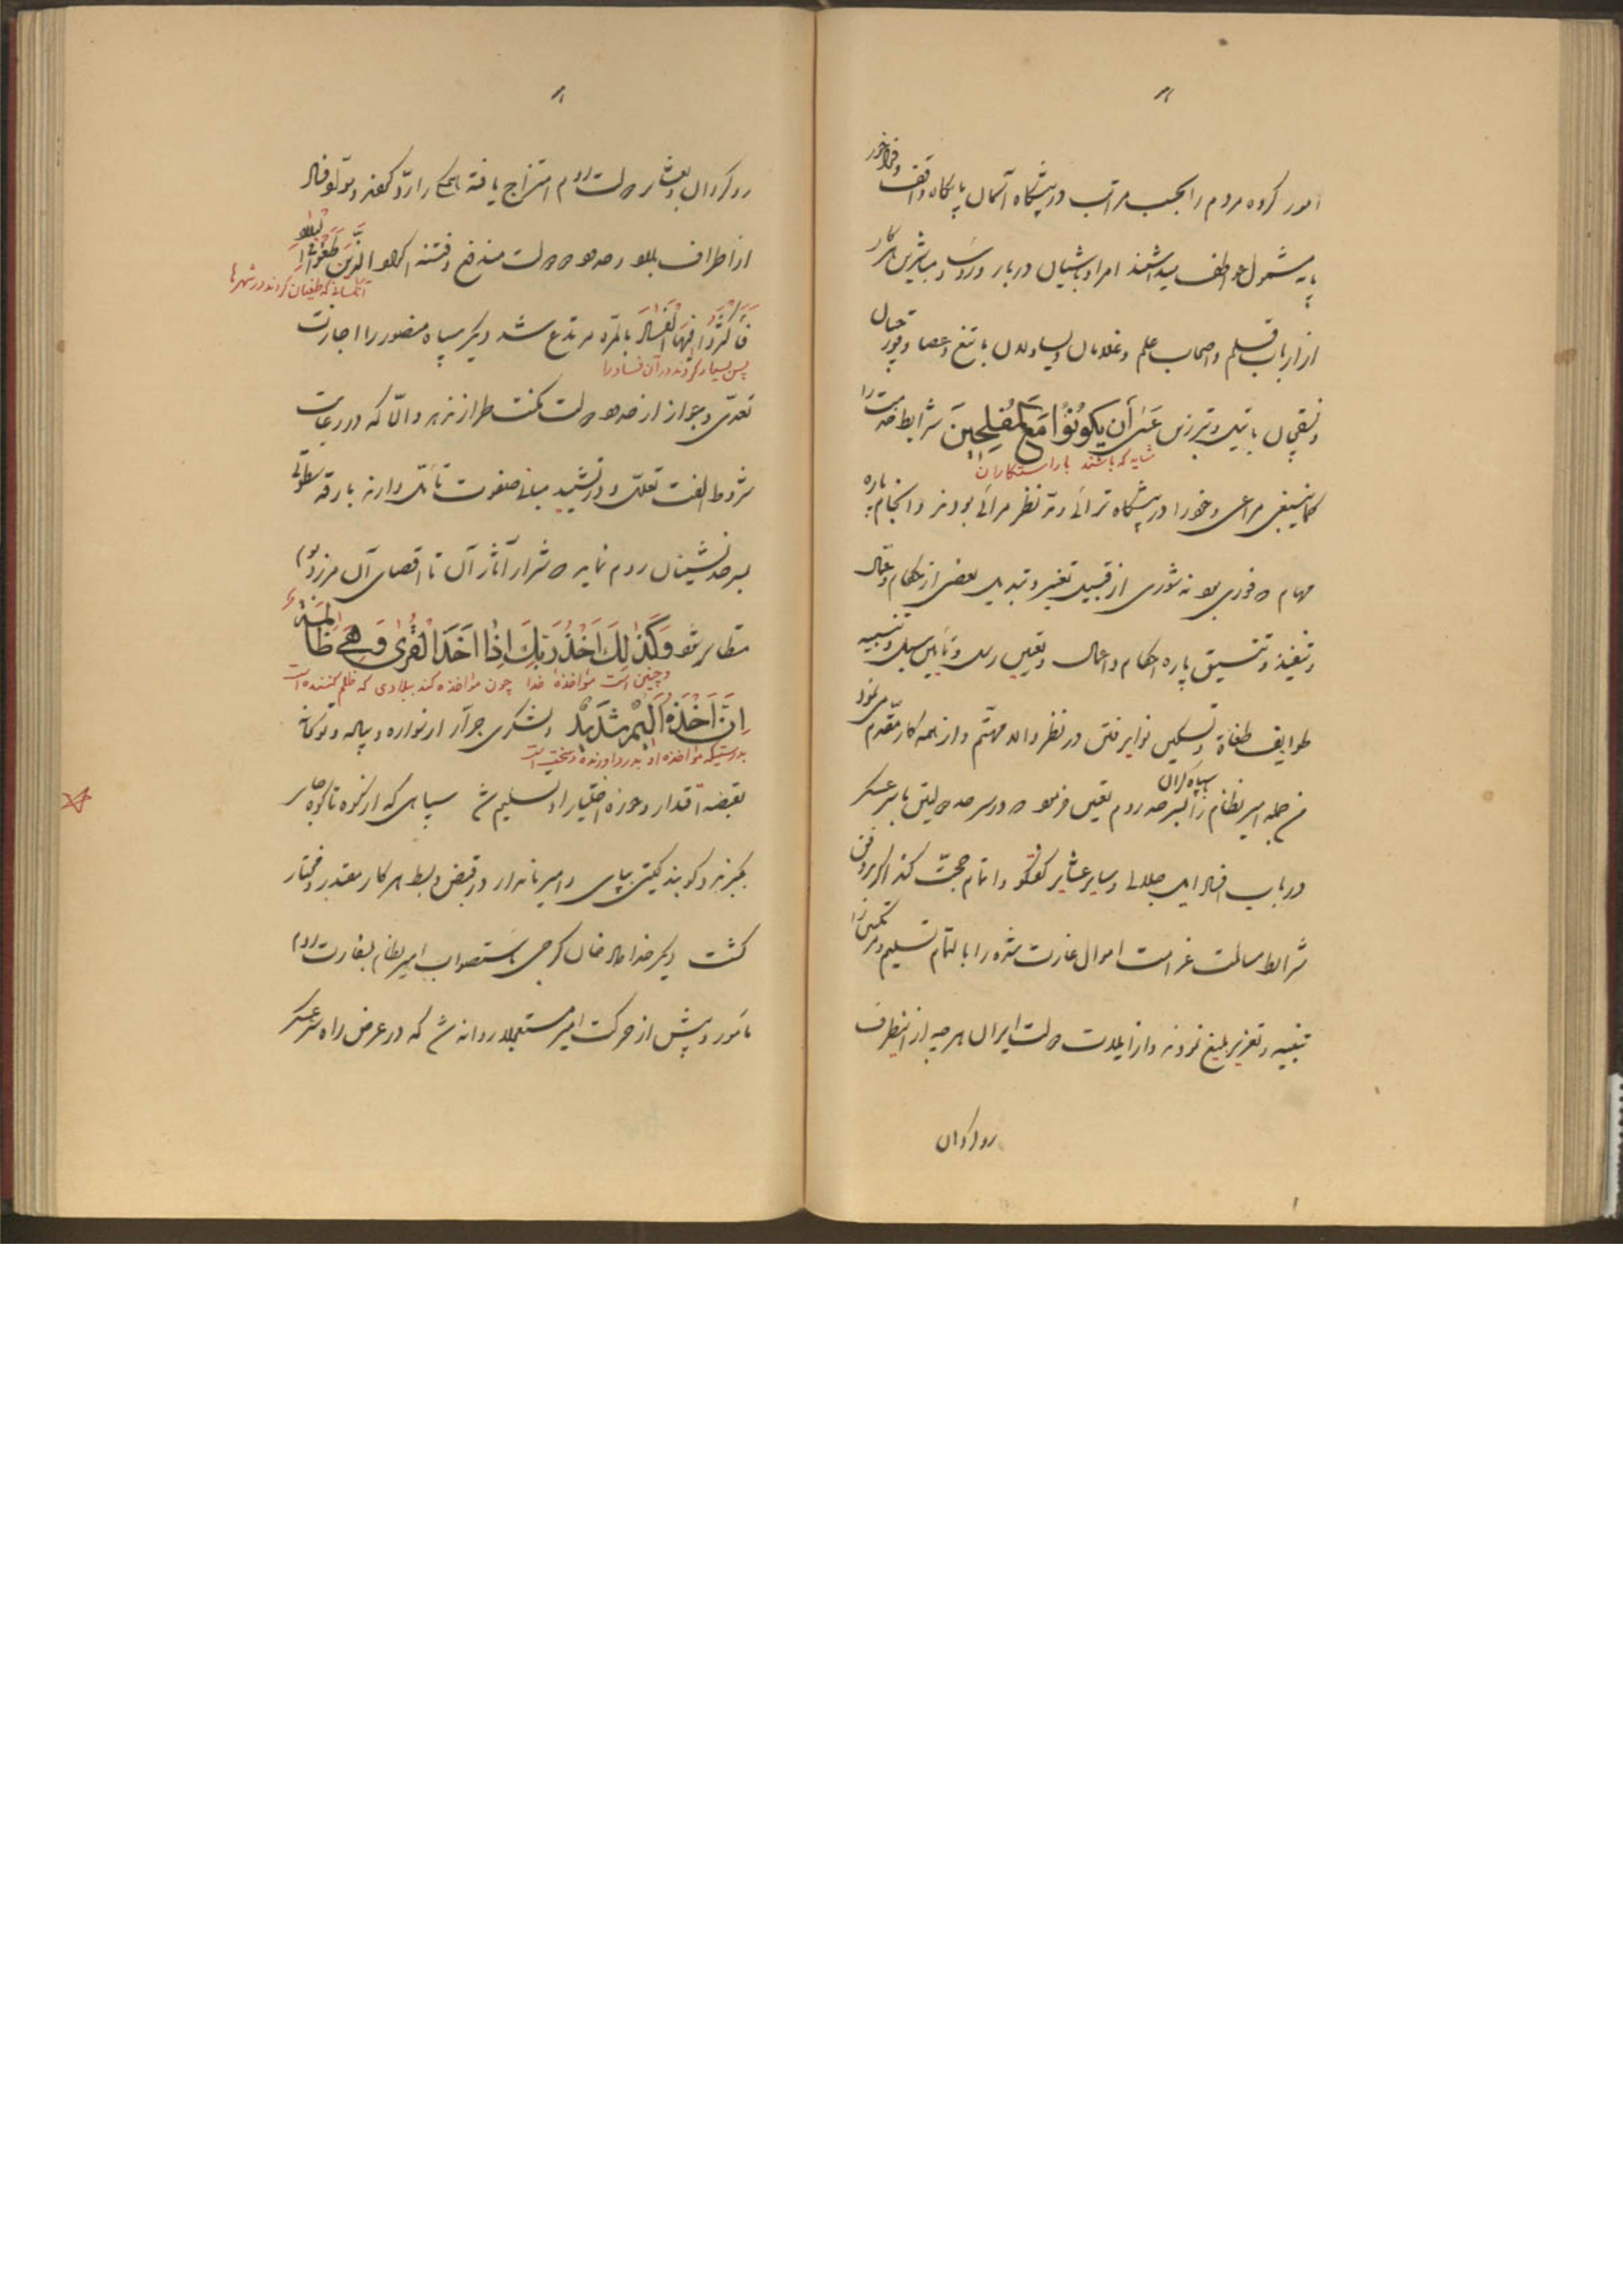 امور گروه مردم را بحسب مراتب در پیشگاه آسمان پایگاه واقف و فراخور
پایه مشمول عواطف میداشتند امرا و باشیان دربار و رؤسا و مباشرین هر کار
از ارباب قلم و اصحاب علم و غلامان و یساولان با تیغ و عصا و
و نسقچیان با تبر زین عَسَىٰ أَن يَكُونُوا مَعَ ٱلْمُفْلِحِينَ شرایط خدمت را
شاید که باشند با راستکاران
کماینبغی مراعی و خود را در پیشگاه نظر مرائی بودند و انجام پاره
مهام فوری بود نه شوری از قبیل تغییر و تبدیل بعضی از حکام و عمال
و تنفیذ و تنسیق پاره احکام و اعمال و تعیین رسل و تأمین سبل و تنبیه
طوایف طغاة و تسکین نوایر فتن در نظر والا مهتّم و از همه کار مقدّم می نمود
من جمله امیر نظام را با سپاه گران بسرحد روم تعیین فرمود که در سرحد دولتین با سرعسکر
در باب ایل جلالی و سایر عشایر گفتگو و اتمام حجّت کند اگر بر وفق
شرایط مسالمت غرامت اموال غارت شده را بالتمام تسلیم و مرتکبین را
تنبیه و تعزیر بلیغ نمودند و از ایلات دولت ایران هر چه از اینطرف
روگردان
روگردان و بعشایر دولت روم امتزاج یافته همگی را ردّ کردند
از اطراف بلاد و حدود دولت مندفع و فتنه اکراد الَّذِينَ طَغَوْا فِي ٱلْبِلَادِ
آنکسانیکه طغیان کردند در شهرها
فَأَكْثَرُوا فِيهَا ٱلْفَسَادَ بالمره مرتدع شد دیگر سپاه منصور را اجازت
پس بسیار کردند در آن فساد را
تعدّی و جواز از حدود دولت مکنت طراز ندهد و الّا که در رعایت
شروط الفت تعلل و در تشیید مبانی صفوت تأمل دارند بارقه سطوتی
بسرحدنشینان روم نماید که شرار آثار آن تا اقصای آن مرز و بوم
متطایر شود وَكَذَٰلِكَ أَخْذُ رَبِّكَ إِذَا أَخَذَ ٱلْقُرَىٰ وَهِيَ ظَالِمَةٌ
و چنین است مؤاخذه خدا چون مؤاخذه کند بلادی که ظلم کننده است
إِنَّ أَخْذَهُ أَلِيمٌ شَدِيدٌ و لشکری جرار از سواره و پیاده و توپخانه
بدرستیکه مؤاخذه او بدرد آورنده و سخت است
بقبضه اقتدار و حوزه اختیار او تسلیم شد سپاهی که از کوه تا کوه جای
بگیرند و کوبند گیتی بپای و امیر نامدار در قبض و بسط هر کار مقتدر و مختار
گشت دیگر خداداد خان گرجی باستصواب امیر نظام بسفارت روم
مأمور و پیش از حرکت امیر مستعجلاً روانه شد که در عرض راه سرعسکر